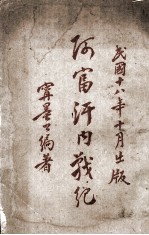 民國十八年十月出版
阿富汗内戰紀
寗墨公編著